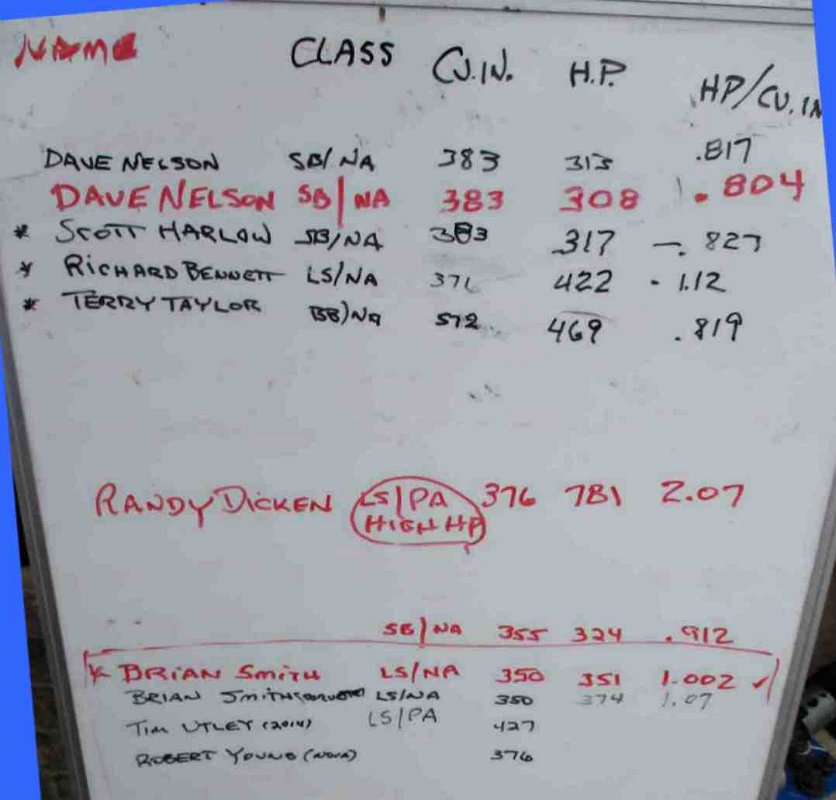 NAME CLASS CU.IN. H.P. HP/CU.IN
DAVE NELSON SB/NA 383 313 .817
DAVE NELSON SB/NA 383 308 .804
* SCOTT HARLOW SB/NA 383 317 .827
* RICHARD BENNETT LS/NA 376 422 1.12
* TERRY TAYLOR BB/NA 572 469 .819
RANDY DICKEN LS/PA 376 781 2.07
HIGH HP
SB/NA 355 324 .912
* BRIAN SMITH LS/NA 350 351 1.002 ✓
BRIAN SMITH LS/NA 350 374 1.07
TIM UTLEY (2014) LS/PA 427
ROBERT YOUNG (NOVA) 376